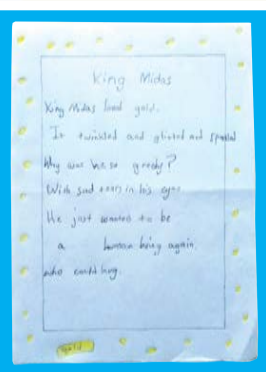 King Midas
King Midas loved gold.
It twinkled and glinted and sparkled
Why was he so greedy?
With sad tears in his eyes
He just wanted to be
a human being again
who could hug.
gold